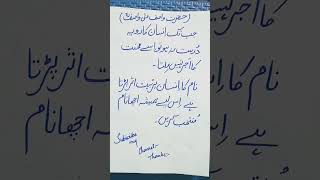 (حضرت واصف علی واصفؒ)
جب تک انسان کا رویہ
درست نہ ہو اسے محنت
کا اجر نہیں ملتا۔
نام کا انسان پر بہت اثر پڑتا
ہے اس لیے ہمیشہ اچھا نام
منتخب کریں۔
Subscribe
my
Channel
Thanks